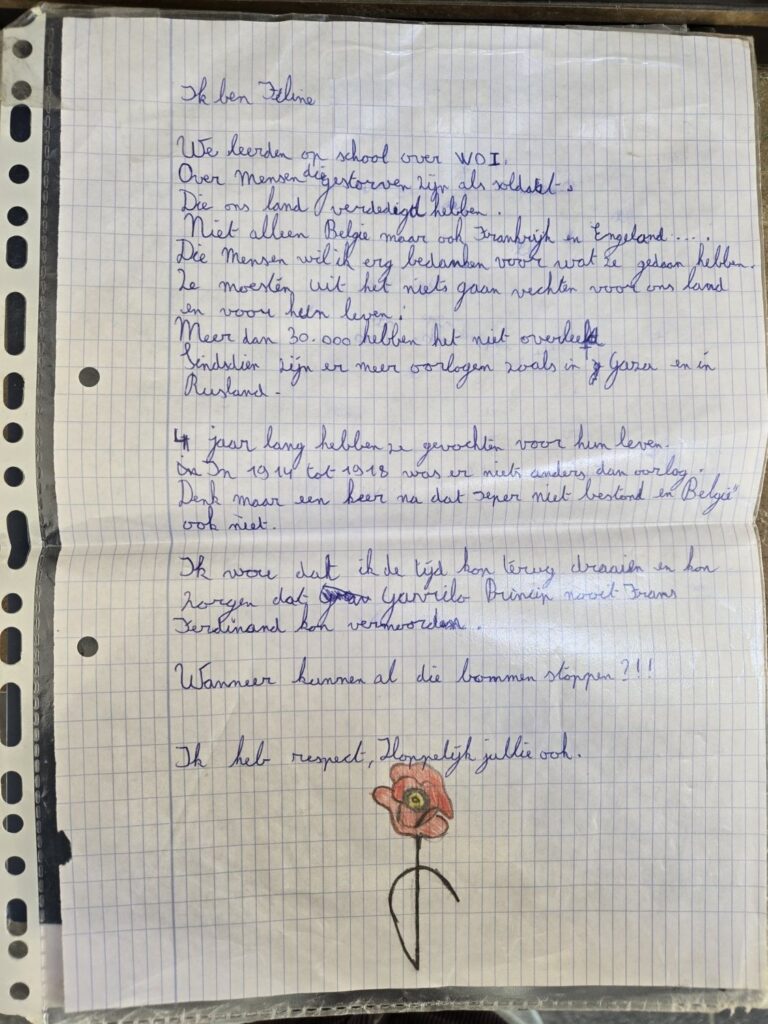 Ik ben Feline
We leerden op school over WOI.
Over mensen die gestorven zijn als soldaat.
Die ons land verdedigd hebben.
Niet alleen België maar ook Frankrijk en Engeland ....
Die mensen wil ik erg bedanken voor wat ze gedaan hebben.
Ze moesten uit het niets gaan vechten voor ons land
en voor hun leven.
Meer dan 30.000 hebben het niet overleefd
Sindsdien zijn er meer oorlogen zoals in Gaza en in
Rusland.
4 jaar lang hebben ze gevochten voor hun leven.
In 1914 tot 1918 was er niets anders dan oorlog.
Denk maar een keer na dat Ieper niet bestond en België
ook niet.
Ik wou dat ik de tijd kon terug draaien en kon
zorgen dat Gavrilo Princip nooit Frans
Ferdinand kon vermoorden.
Wanneer kunnen al die bommen stoppen?!!
Ik heb respect, Hoppelijk jullie ook.